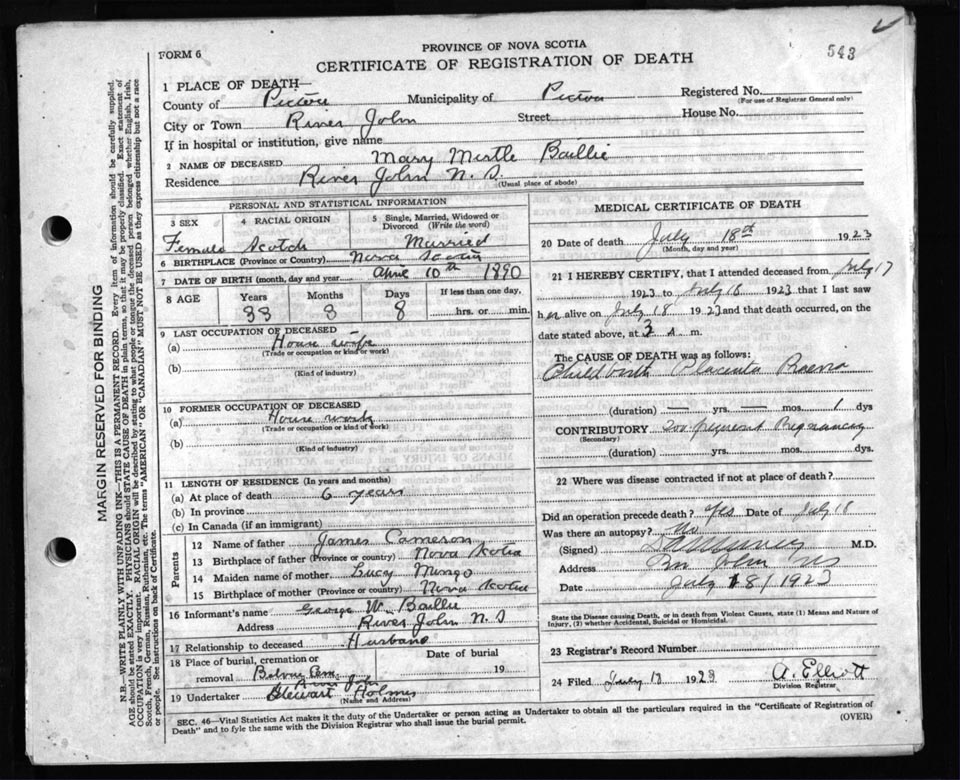 543
PROVINCE OF NOVA SCOTIA
FORM 6
CERTIFICATE OF REGISTRATION OF DEATH
1 PLACE OF DEATH—
County of Pictou Municipality of Pictou Registered No.
(For use of Registrar General only)
City or Town River John Street House No.
If in hospital or institution, give name
2 NAME OF DECEASED Mary Mirtle Baillie
Residence River John N. S.
(Usual place of abode)
PERSONAL AND STATISTICAL INFORMATION
3 SEX 4 RACIAL ORIGIN 5 Single, Married, Widowed or
Divorced (Write the word)
Female Scotch Married
6 BIRTHPLACE (Province or Country) Nova Scotia
7 DATE OF BIRTH (month, day and year) April 10th 1890
8 AGE Years Months Days If less than one day,
33 3 8 hrs. or min.
9 LAST OCCUPATION OF DECEASED
(a) House wife
(Trade or occupation or kind of work)
(b)
(Kind of industry)
10 FORMER OCCUPATION OF DECEASED
(a) House work
(Trade or occupation or kind of work)
(b)
(Kind of industry)
11 LENGTH OF RESIDENCE (In years and months)
(a) At place of death 6 years
(b) In province
(c) In Canada (if an immigrant)
Parents
12 Name of father James Cameron
13 Birthplace of father (Province or country) Nova Scotia
14 Maiden name of mother Lucy Mingo
15 Birthplace of mother (Province or country) Nova Scotia
16 Informant's name George W. Baillie
Address River John N. S
17 Relationship to deceased Husband
18 Place of burial, cremation or Date of burial
removal Cem. 19
River John
19 Undertaker Stewart Holmes
(Name and Address)
MEDICAL CERTIFICATE OF DEATH
20 Date of death July 18th 1923
(Month, day and year)
21 I HEREBY CERTIFY, that I attended deceased from July 17
1923 to July 18 1923 that I last saw
her alive on July 18 1923 and that death occurred, on the
date stated above, at 3 a m.
The CAUSE OF DEATH was as follows:
Childbirth Placenta Praevia
(duration) — yrs. — mos. 1 dys
CONTRIBUTORY Too frequent Pregnancy
(Secondary)
(duration) yrs. mos. dys.
22 Where was disease contracted if not at place of death?
Did an operation precede death? Yes Date of July 18
Was there an autopsy? No
(Signed) M.D.
Address River John NS
Date July 18/1923
State the Disease causing Death, or in death from Violent Causes, state (1) Means and Nature of
Injury, (2) whether Accidental, Suicidal or Homicidal.
23 Registrar's Record Number
24 Filed July 18 1923 A. Elliott
Division Registrar
SEC. 46—Vital Statistics Act makes it duty of the Undertaker or person acting as Undertaker to obtain all the particulars required in the "Certificate of Registration of
Death" and to fyle the same with the Division Registrar who shall issue the burial permit.
(OVER)
MARGIN RESERVED FOR BINDING
N.B.—WRITE PLAINLY WITH UNFADING INK—THIS IS A PERMANENT RECORD. Every item of information should be carefully supplied.
AGE should be stated EXACTLY. PHYSICIANS should STATE CAUSE OF DEATH in plain terms, so that it may be properly classified. Exact statement of
OCCUPATION is very important. RACIAL ORIGIN will be described by stating to what people or tongue the deceased person belonged whether English, Irish,
Scotch, French, German, Russian, Ruthenian, etc. The terms "AMERICAN" or "CANADIAN" MUST NOT BE USED as they express citizenship but not a race
or people. See instructions on back of Certificate.